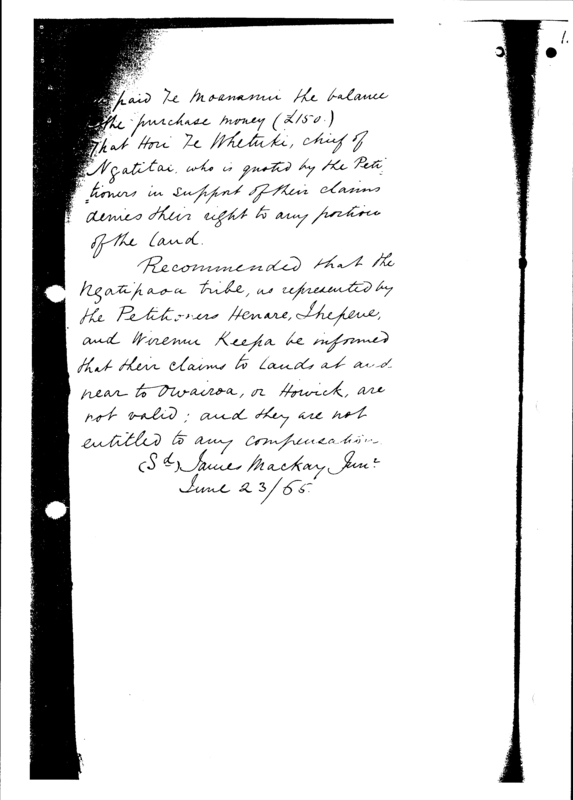 1.
paid Te Moananui the balance
the purchase money (£150.)
That Hori Te Whetuki, chief of
Ngatitai, who is quoted by the Peti
tioners in support of their claims
denies their right to any portion
of the land.
Recommended that the
Ngatipaoa tribe, as represented by
the Petitioners Henare, Ihepene,
and Wiremu Keepa be informed
that their claims to lands at and
near to Owairoa, or Howick, are
not valid; and they are not
entitled to any compensation.
(Sd) James Mackay Junr
June 23/65.